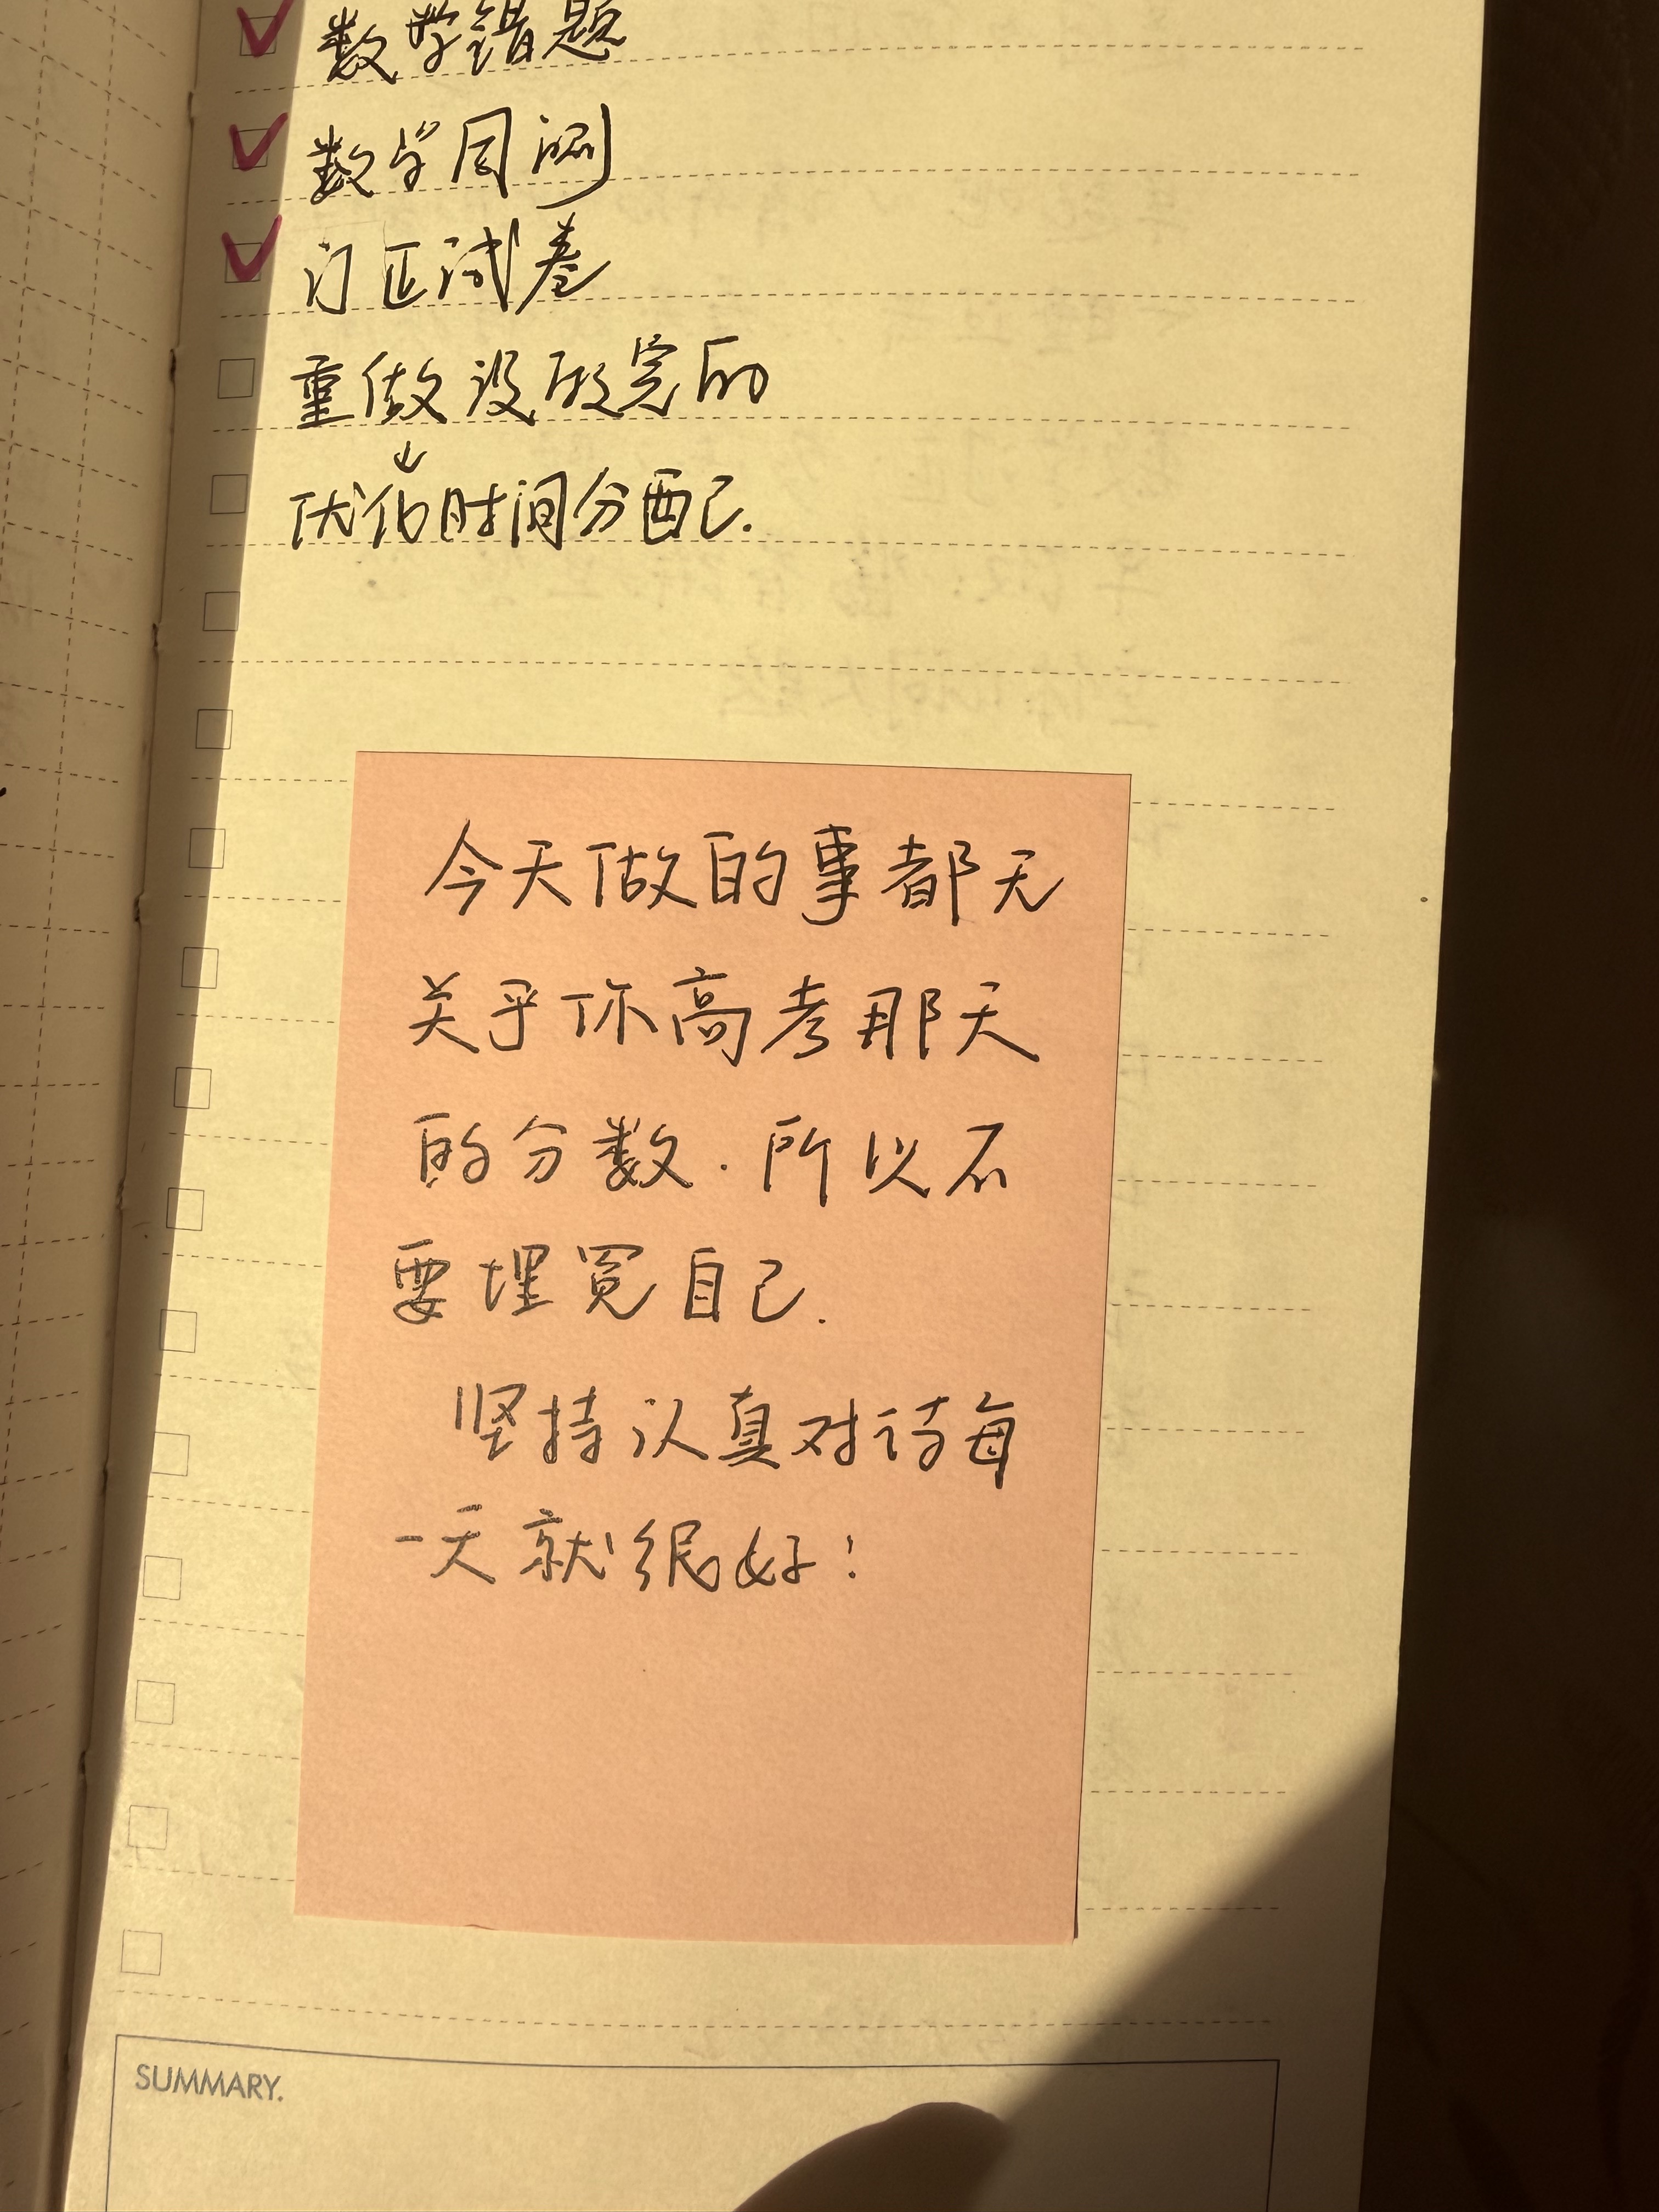 数学错题
数学周测
订正试卷
重做没做完的
↓
优化时间分配.
今天做的事都无
关乎你高考那天
的分数.所以不
要埋冤自己.
坚持认真对待每
一天就很好!
SUMMARY.